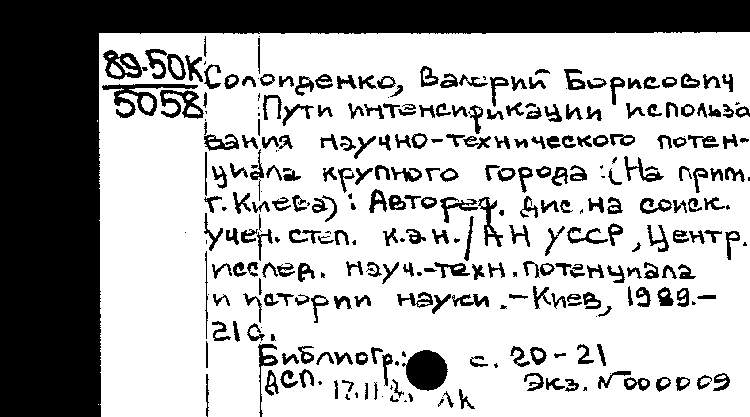 89-50К
5058
Солопденко, Валерий Борисович
Пути интенсификации использо
вания научно-технического потен-
циала крупного города : (На прим.
г. Киева) : Автореф. дис. на соиск.
учен. степ. к.э.н. / АН УССР, Центр.
исслед. науч.-техн. потенциала
и истории науки. - Киев, 1989. -
21 с.
Библиогр.: с. 20-21
ДСП. 17.11 АК Экз. N 000009